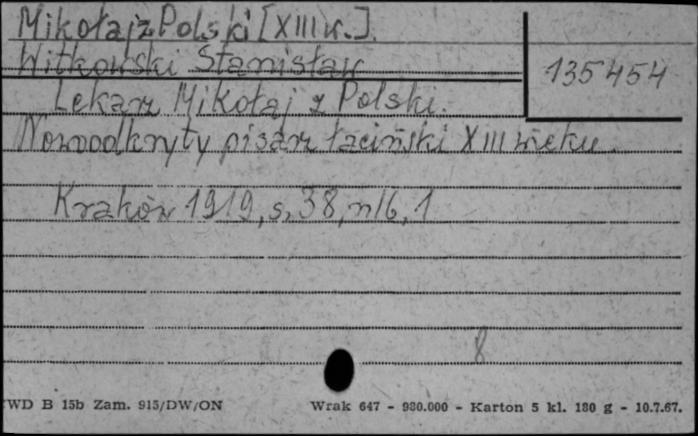 Mikołaj z Polski [XIII w.].
Witkowski Stanisław
135454
Lekarz Mikołaj z Polski.
Nowoodkryty pisarz łaciński XIII wieku.
Kraków 1919, s. 38, nlb. 1
8
WD B 15b Zam. 915/DW/ON
Wrak 647 - 980.000 - Karton 5 kl. 180 g - 10.7.67.